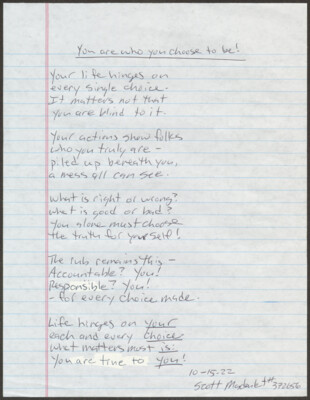 You are who you choose to be!
Your life hinges on
every single choice.
It matters not that
you are blind to it.
Your actions show folks
who you truly are -
piled up beneath you,
a mess all can see.
What is right or wrong?
what is good or bad?
You alone must choose
the truth for yourself!
The rub remains this -
Accountable? You!
Responsible? You!
- for every choice made.
Life hinges on your
each and every choice
what matters most is:
you are true to you!
10-15-22
Scott